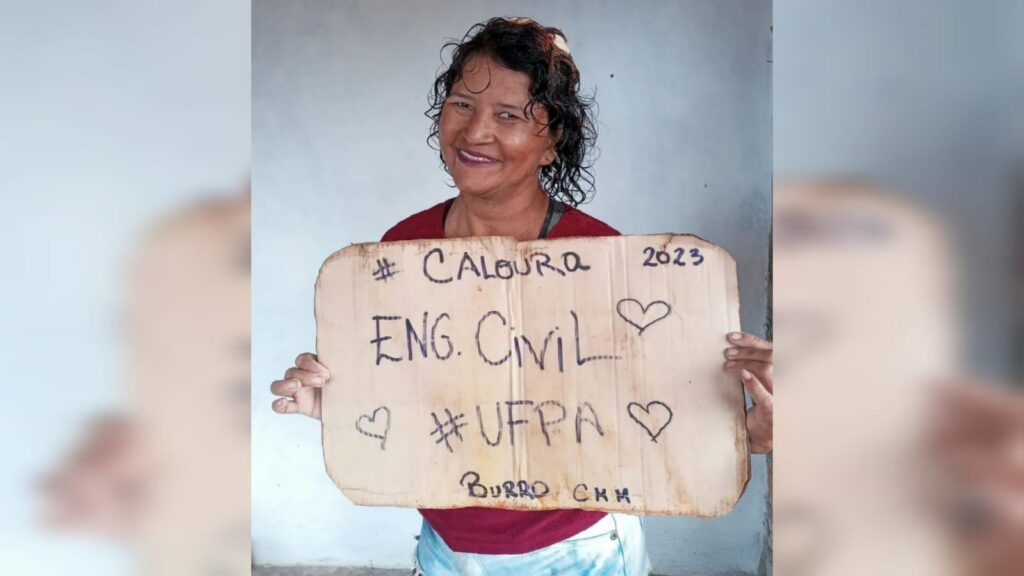 # CALOURA 2023
ENG. CIVIL
#UFPA
BURRO CMM